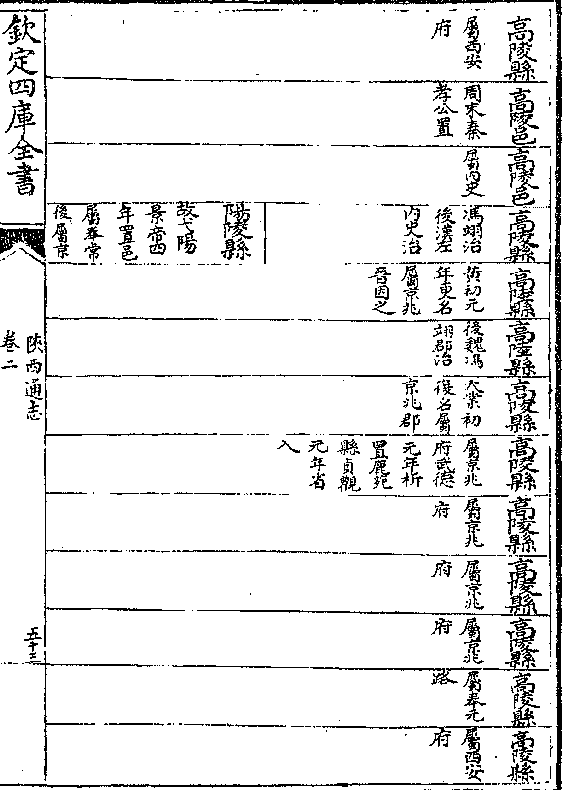 高陵縣
屬西安
府
高陵邑
周末秦
孝公置
高陵邑
屬內史
高陵縣
馮翊治
後漢左
內史治
陽陵縣
故弋陽
景帝四
年置邑
屬奉常
後屬京
高陸縣
黃初元
年更名
屬京兆
晉因之
高陸縣
後魏馮
翊郡治
高陵縣
大業初
復名屬
京兆郡
高陵縣
屬京兆
府武德
元年析
置鹿苑
縣貞觀
元年省
入
高陵縣
屬京兆
府
高陵縣
屬京兆
府
高陵縣
屬京兆
府
高陵縣
屬奉元
路
高陵縣
屬西安
府
欽定四庫全書
陝西通志
卷二
五十三